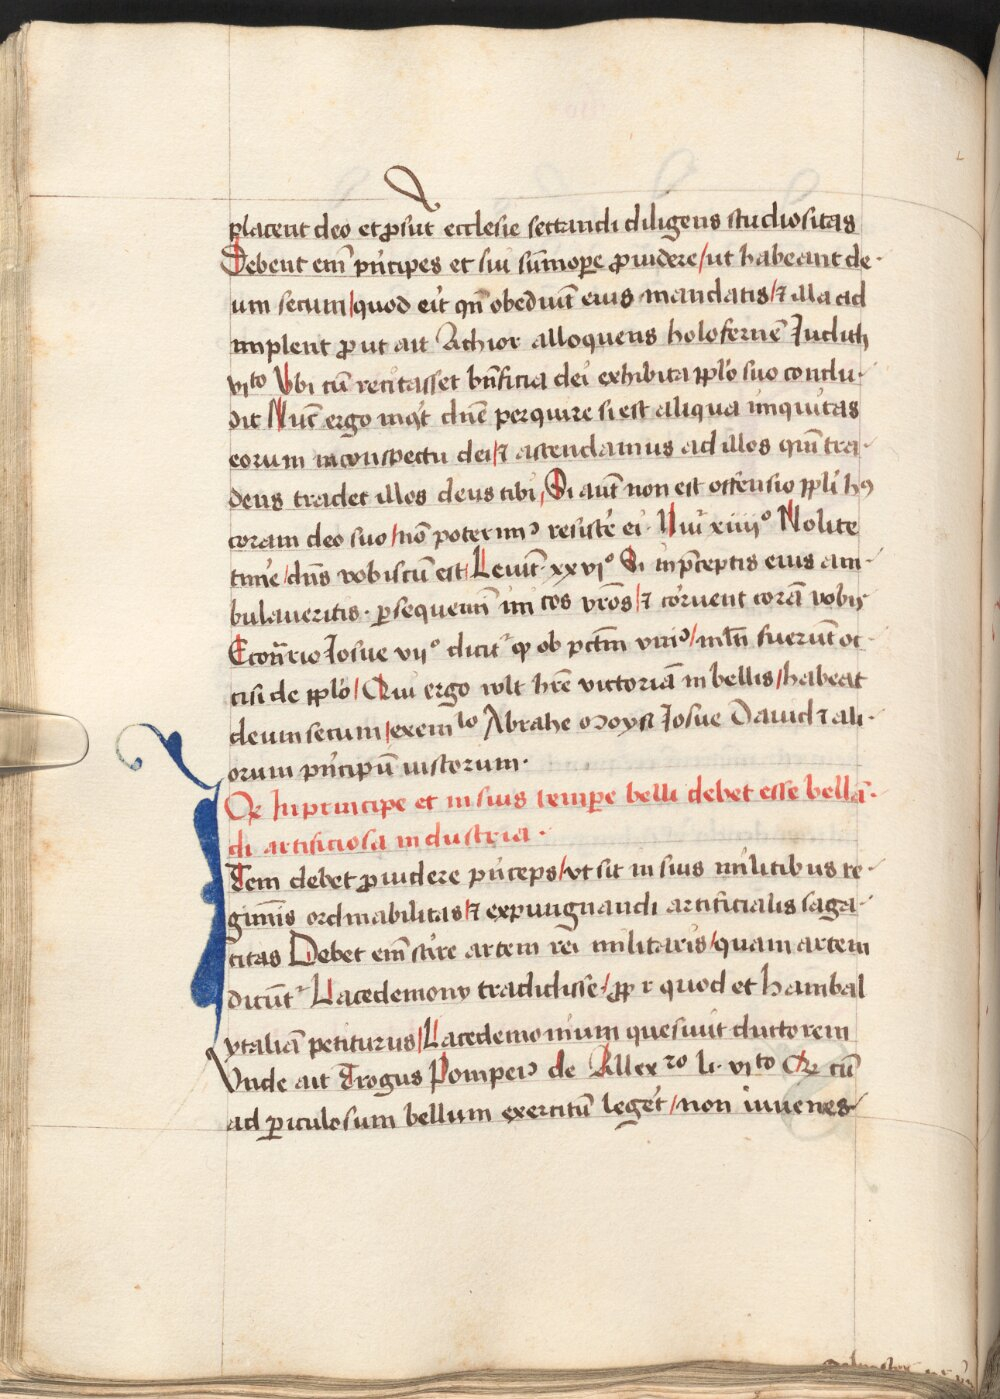 placent deo et ꝓsūt ecclesie sectandi diligens studiositas
Debent em̄ pⁱncipes et sui sūmoꝑe ꝓuidere / ut habeant de-
um secum / quod eīt qn̄ obediūt eius mandatis / ⁊ illa ad
implent ꝓut ait Achior alloquens holofernē Judith
viᵗᵒ Vbi cū recitasset bn̄ficia dei exhibita pplo suo conclu-
dit Nūc ergo inqⁱt dn̄e perquire si est aliqua iniquitas
eorum in conspectu dei / ⁊ ascendamus ad illos qm̄ tra-
dens tradet illos deus tibi / Si aūt non est offensio ppli hꝰ
coram deo suo / nō poterimꝰ resistē ei · Nūi xiiijº Nolite
timē / dn̄s vobiscū est / Leuit̄ · xxvjº Si in p̄ceptis eius am-
bulaueritis · ꝑsequemī inicos vr̄os / ⁊ corruent corā vobis
Econͬrio Josue vijº dicitᷣ ꝙ ob pctm̄ viniꝰ / ml̄ti fuerūt oc-
cisi de pplo / Qui ergo wlt hr̄e victoriā in bellis / habeat
deum secum / exemˡᵒ Abrahe Moysi Josue Dauid ⁊ ali-
orum pⁱncipū iustorum ·
Qꝛ In principe et in suis tempe belli debet esse bellā-
di artificiosa industria ·
Item debet ꝓuidere pⁱnceps / vt sit in suis militibus re-
giminis ordinabilitas / ⁊ expungnandi artificialis saga-
citas Debet em̄ scire artem rei militaris / quam artem
dicūtᷣ Lacedemony tradidisse / ꝓpꝛ quod et Hanibal
ytaliā petiturus / Lacedemonium quesiuit ductorem
Vnde ait Trogus Pompeiꝰ de Allexʳᵒ li · viᵗᵒ Qꝛ cū
ad ꝑiculosum bellum exercitū leget / non iuuenes